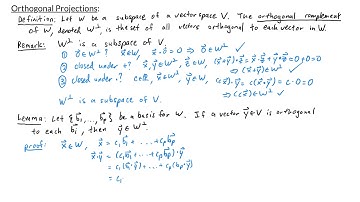 Orthogonal Projections:
Definition: Let W be a subspace of a vector space V. The orthogonal complement
of W, denoted W⊥, is the set of all vectors orthogonal to each vector in W.
Remark: W⊥ is a subspace of V.
① 0⃗ ∈ W⊥? x⃗ ∈ W, x⃗·0⃗ = 0 ⇒ 0⃗ ∈ W⊥ ✓
② closed under +? x⃗, y⃗ ∈ W⊥, z⃗ ∈ W, (x⃗+y⃗)·z⃗ = x⃗·z⃗ + y⃗·z⃗ = 0+0 = 0
⇒ (x⃗+y⃗) ∈ W⊥ ✓
③ closed under ·? c∈ℝ, x⃗ ∈ W⊥, y⃗ ∈ W, (cx⃗)·y⃗ = c(x⃗·y⃗) = c·0 = 0
⇒ (cx⃗) ∈ W⊥ ✓
W⊥ is a subspace of V.
Lemma: Let {b⃗₁, ..., b⃗p} be a basis for W. If a vector y⃗ ∈ V is orthogonal
to each b⃗ᵢ, then y⃗ ∈ W⊥.
proof: x⃗ ∈ W, x⃗ = c₁b⃗₁ + ... + cpb⃗p
x⃗·y⃗ = (c₁b⃗₁ + ... + cpb⃗p)·y⃗
= c₁(b⃗₁·y⃗) + ... + cp(b⃗p·y⃗)
= c₁